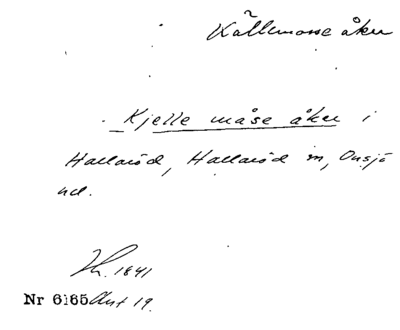 Källemosse åker
Kjelle måse åker i
Hallaröd, Hallaröd sn, Onsjö
hd.
1841
Nr 6165 Avt 19.